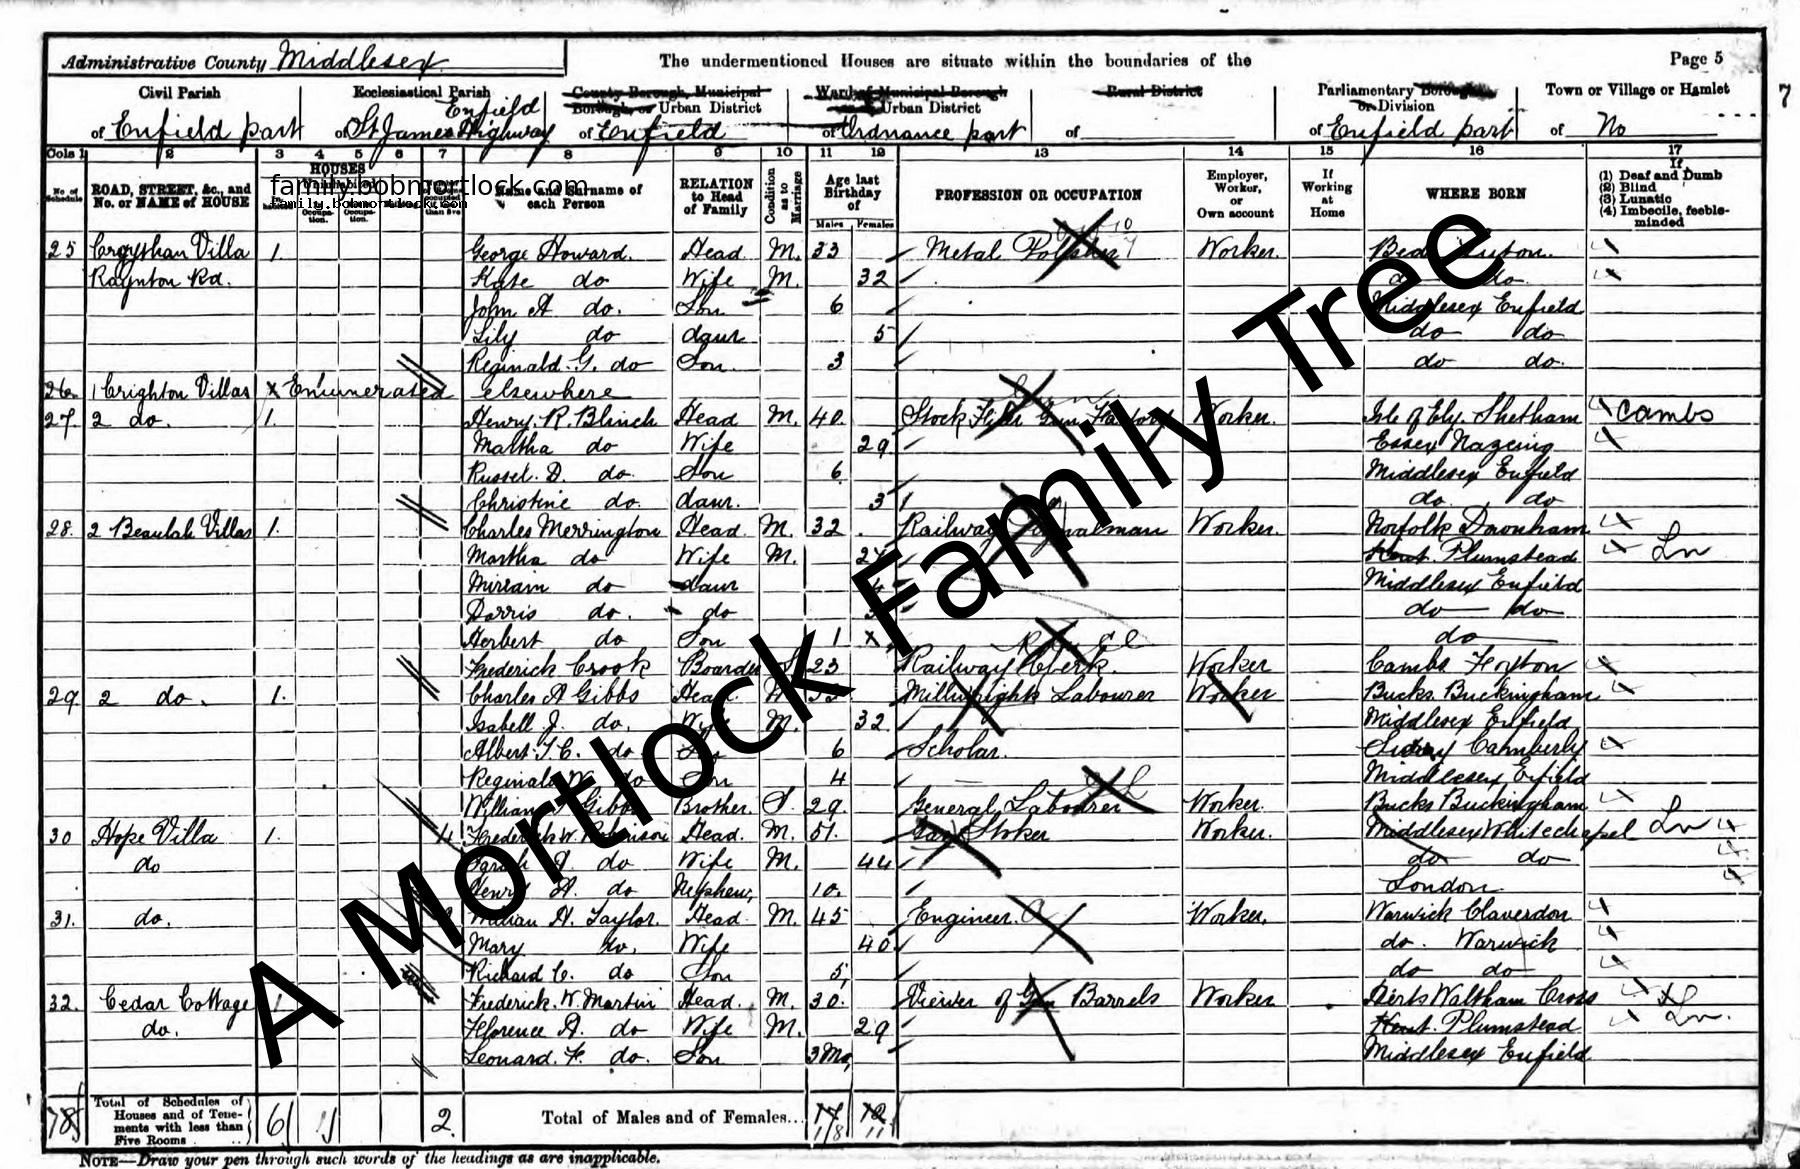 Administrative County Middlesex The undermentioned Houses are situate within the boundaries of the Page 5
7
Civil Parish Ecclesiastical Parish County Borough, Municipal Borough, or Urban District Ward of Municipal Borough or Urban District Rural District Parliamentary Borough or Division Town or Village or Hamlet
of Enfield part of St James Enfield Highway of Enfield of Ordnance part of of Enfield part of No
Cols 1 2 3 4 5 6 7 8 9 10 11 12 13 14 15 16 17
No. of Schedule ROAD, STREET, &c., and No. or NAME of HOUSE HOUSES Name and Surname of each Person RELATION to Head of Family Condition as to Marriage Age last Birthday of Males Females PROFESSION OR OCCUPATION Employer, Worker, or Own account If Working at Home WHERE BORN If (1) Deaf and Dumb (2) Blind (3) Lunatic (4) Imbecile, feeble-minded
family.bobmortlock.com
family.bobmortlock.com
25 Villa 1. George Howard. Head M. 33 Metal Polisher Worker.
Raynton Rd. Kate do Wife M. 32 do do
John A do. Son 6 Middlesex Enfield
Lily do daur 5 do do
Reginald. G. do Son 3 do do.
26 1 Crighton Villas x Enumerated elsewhere
27. 2 do. 1. Henry. R. Blinch Head M. 40. Stock Gun Factory Worker. Isle of Ely. Cambs
Martha do Wife 29 Essex Nazeing
Russel. D. do. Son 6 Middlesex Enfield
Christine do. daur. 3 do do
28. 2 Beaulah Villas 1. Charles Merrington Head M. 32 Railway Signalman Worker. Norfolk
Martha do Wife M. Kent. Plumstead Ln
Mirriam do daur 4 Middlesex Enfield
Dorris do. do do do
Herbert do Son 1 x do
Frederick Crook Boarder S 23 Railway Clerk. Worker Cambs
29. 2 do. 1. Charles A Gibbs Head M Millwrights Labourer Worker Bucks. Buckingham
Isabell J. do. Wife M. 32. Middlesex Enfield
Albert. do Son 6 Scholar. Camberly
Reginald W. do Son 4 Middlesex Enfield
William Gibbs Brother. S. 29. General Labourer Worker. Bucks Buckingham
30 Hope Villa 1. 4 Frederick W. Robinson Head. M. 51. Gas Stoker Worker. Middlesex Whitechapel Ln
do Sarah A. do Wife M. 44 do do
Henry A. do Nephew, 10. London
31. do. William H. Taylor. Head M. 45 Engineer. Worker. Warwick Claverdon
Mary do. Wife 40 do. Warwick
Richard C. do Son 5, do do
32. Cedar Cottage 1 Frederick. W. Martin Head. M. 30. Viewer of Gun Barrels Worker Herts Waltham Cross
do. Florence A. do Wife M. 29 Kent. Plumstead Ln.
Leonard. F. do. Son 3 Mo, Middlesex Enfield
Total of Schedules of Houses and of Tenements with less than Five Rooms 6 2. Total of Males and of Females... 17 12
18 11
NOTE—Draw your pen through such words of the headings as are inapplicable.
A Mortlock Family Tree